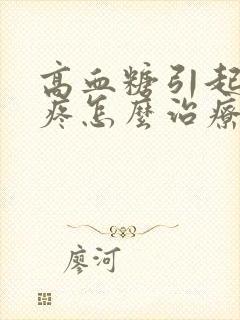 高血糖引起
疼怎麼治療
廖河